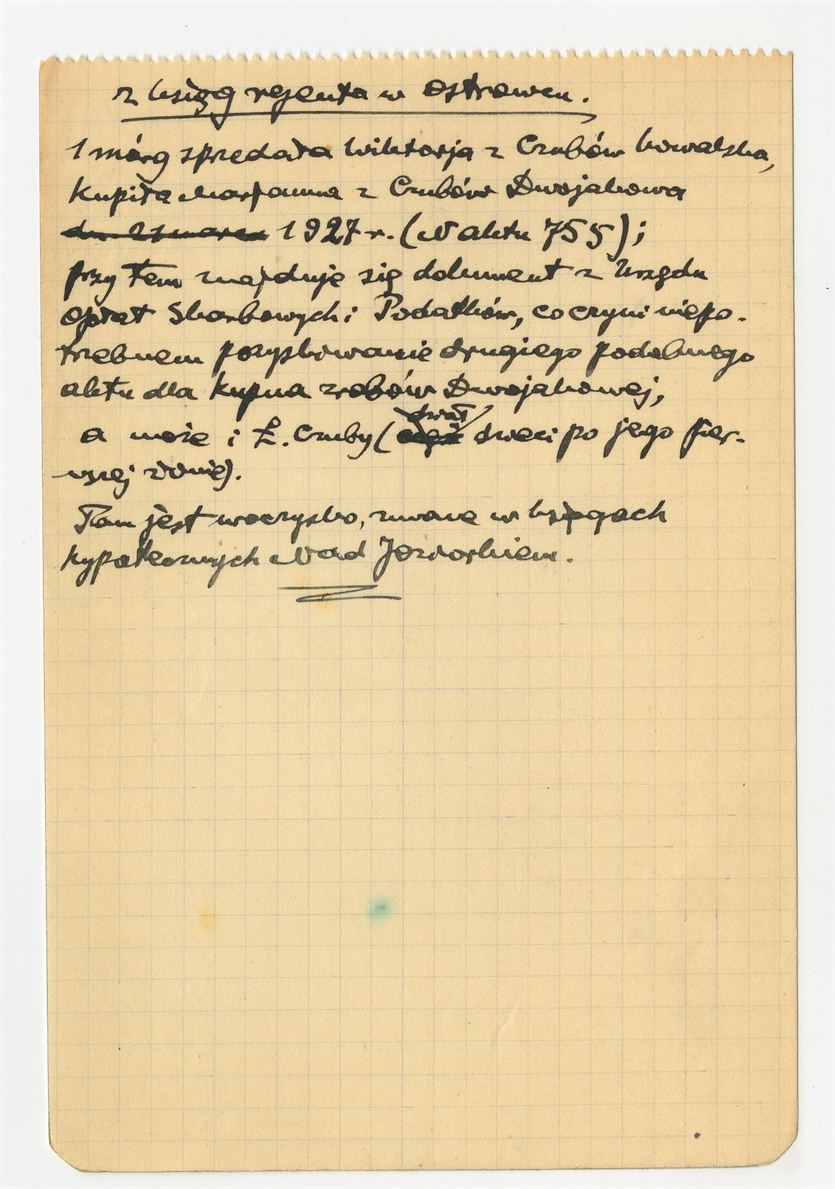 z ksiąg rejenta w Ostrowcu.
1 mórg sprzedała Wiktorja z Czubów Kowalska,
kupiła Marjanna z Czubów Dwojakowa
1927 r. (N aktu 755);
przy tem znajduje się dokument z Urzędu
Opłat Skarbowych i Podatków, co czyni niepo-
trzebnem pozyskiwanie drugiego podobnego
aktu dla kupna zrobów Dwojakowej,
a może i Ł. Czuby ( dzieci po jego pier-
wszej żonie).
Tam jest uroczysko, zwane w księgach
hypotecznych Nad Jeziorkiem.